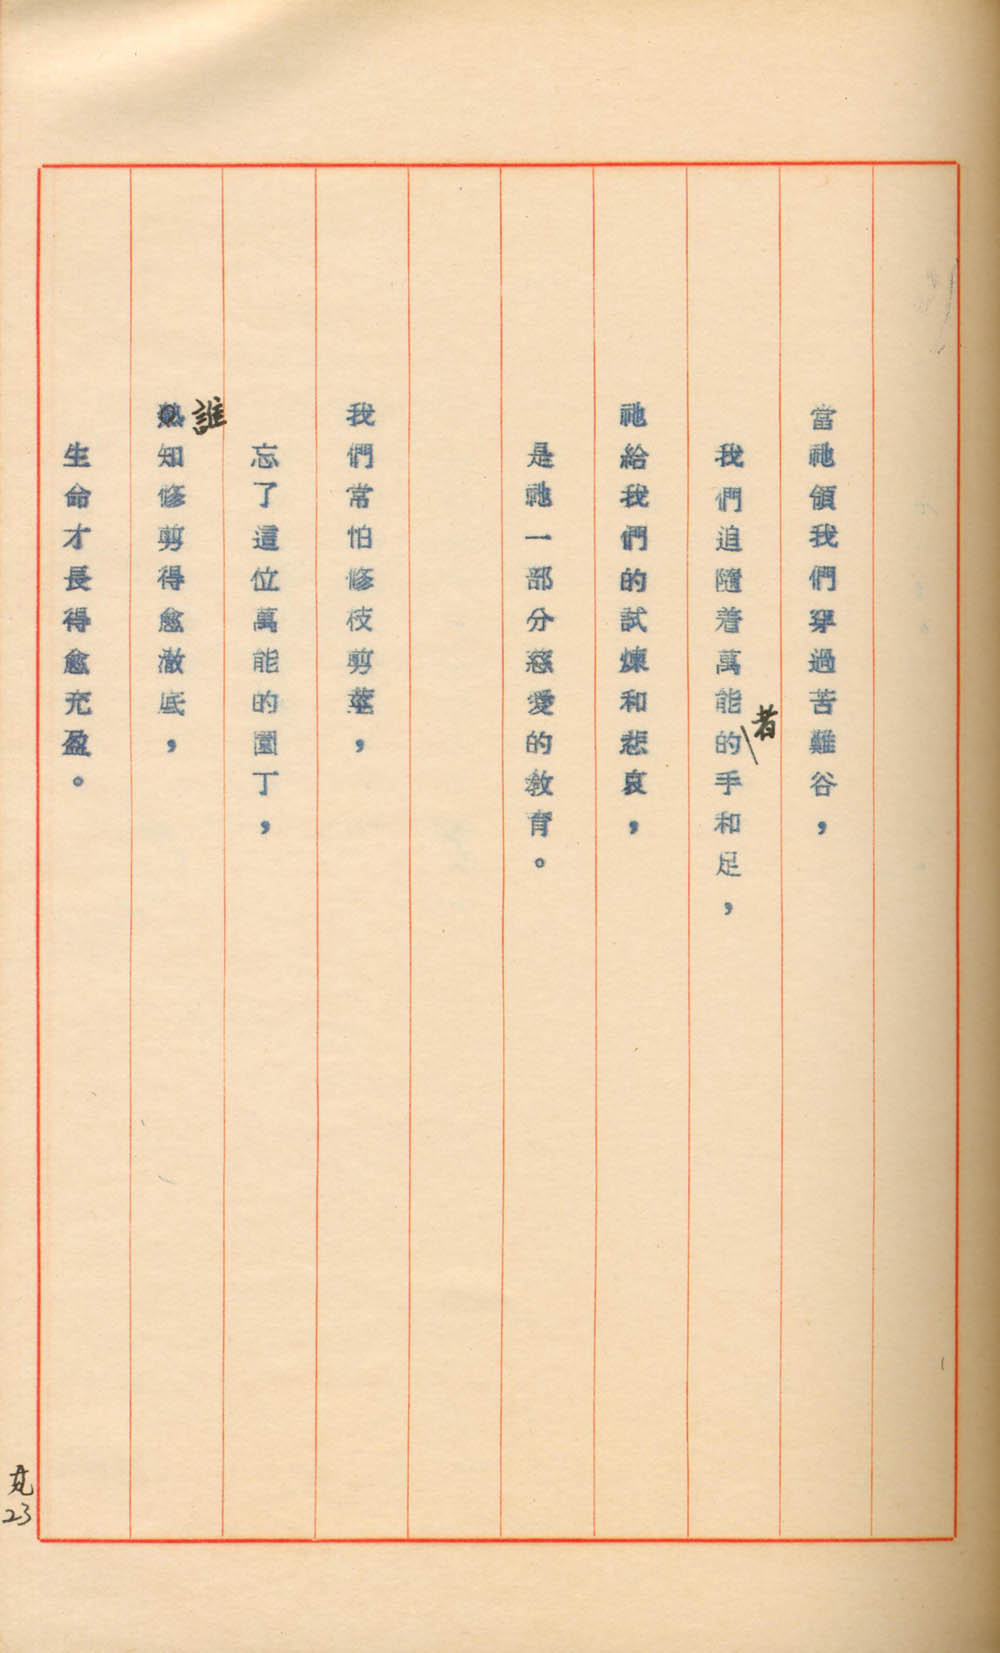 當祂領我們穿過苦難谷，
我們追隨着萬能者的手和足，
祂給我們的試煉和悲哀，
是祂一部分慈愛的教育。
我們常怕修枝剪莖，
忘了這位萬能的園丁，
誰
知修剪得愈澈底，
生命才長得愈充盈。
23